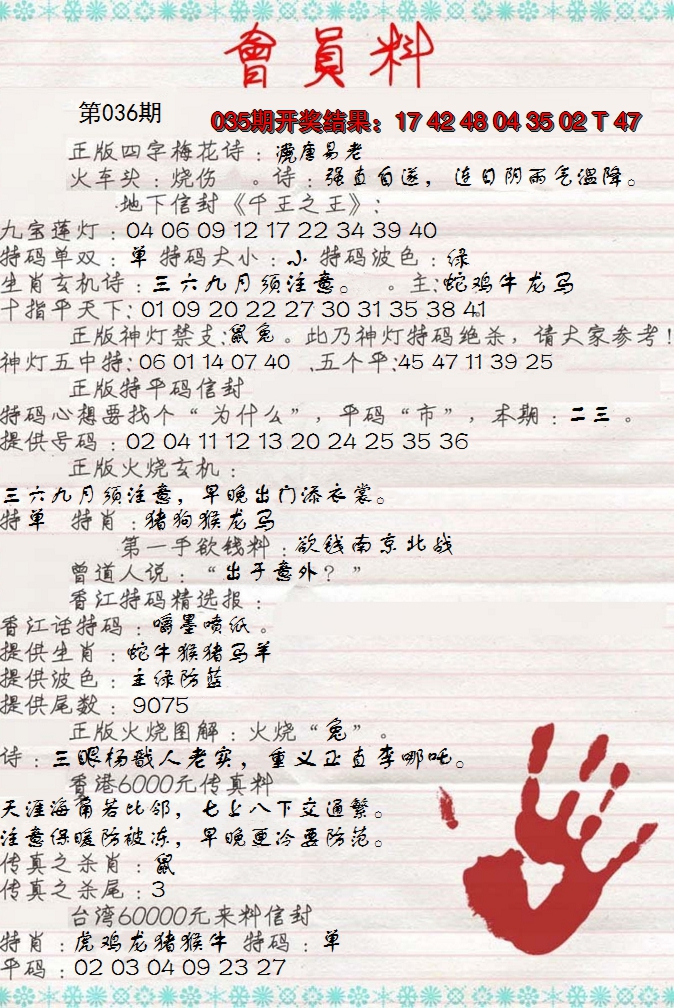 會員料
第036期
035期开奖结果：17 42 48 04 35 02 T 47
正版四字梅花诗：冯唐易老
火车头：烧伤 。诗：强直自遂，连日阴雨气温降。
地下信封《千王之王》：
九宝莲灯：04 06 09 12 17 22 34 39 40
特码单双：单 特码大小：小 特码波色：绿
生肖玄机诗：三六九月须注意。 。主:蛇鸡牛龙马
十指平天下：01 09 20 22 27 30 31 35 38 41
正版神灯禁支:鼠兔。此乃神灯特码绝杀，请大家参考！
神灯五中特：06 01 14 07 40 .五个平:45 47 11 39 25
正版特平码信封
特码心想要找个“为什么”，平码“市”，本期：二三。
提供号码：02 04 11 12 13 20 24 25 35 36
正版火烧玄机：
三六九月须注意，早晚出门添衣裳。
特单 特肖：猪狗猴龙马
第一手欲钱料：欲钱南京北战
曾道人说：“出乎意外？”
香江特码精选报：
香江话特码：嚼墨喷纸。
提供生肖：蛇牛猴猪马羊
提供波色：主绿防蓝
提供尾数：9075
正版火烧图解：火烧“兔”。
诗：三眼杨戬人老实，重义正直李哪吒。
香港6000元传真料
天涯海角若比邻，七上八下交通繁。
注意保暖防被冻，早晚更冷要防范。
传真之杀肖：鼠
传真之杀尾：3
台湾60000元来料信封
特肖：虎鸡龙猪猴牛 特码：单
平码：02 03 04 09 23 27